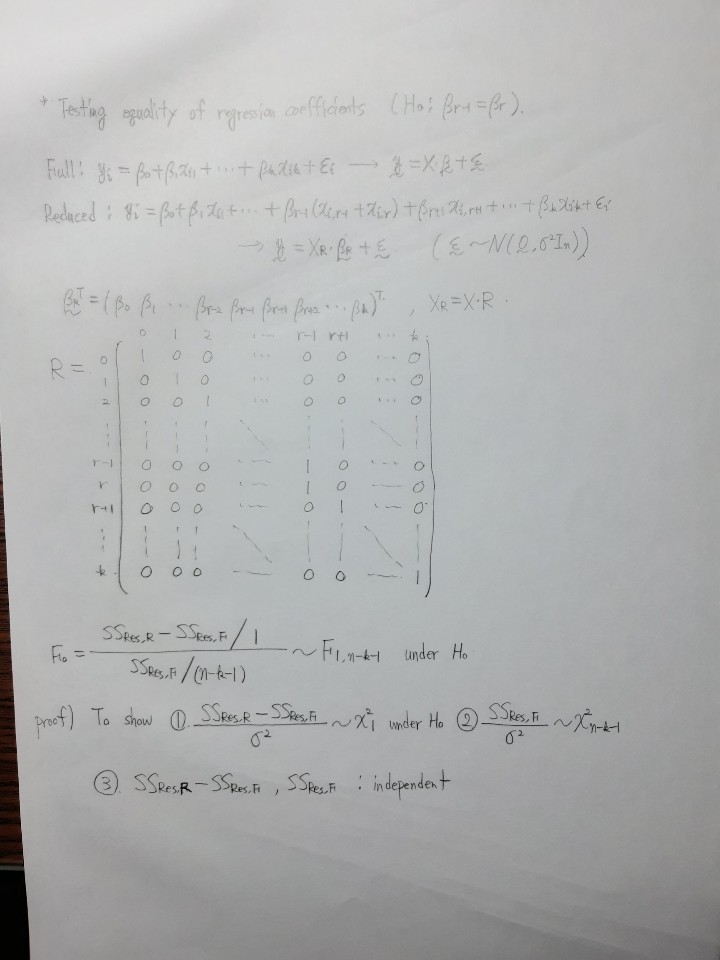 * Testing equality of regression coefficients (H₀: βr-1 = βr).
Full: yi = β0 + β1xi1 + ⋯ + βkxik + εi → y = X·β + ε
Reduced: yi = β0 + β1xi1 + ⋯ + βr-1(xi,r-1 + xi,r) + βr+1xi,r+1 + ⋯ + βkxik + εi
→ y = XR·βR + ε. (ε ~ N(0, σ²In))
βR^T = (β0 β1 ⋯ βr-2 βr-1 βr+1 βr+2 ⋯ βk)^T, XR = X·R.
0 1 2 ⋯ r-1 r+1 ⋯ k
R = 0 1 0 0 ⋯ 0 0 ⋯ 0
1 0 1 0 ⋯ 0 0 ⋯ 0
2 0 0 1 ⋯ 0 0 ⋯ 0
⋮ ⋮ ⋮ ⋮ ⋱ ⋮ ⋮ ⋱ ⋮
r-1 0 0 0 ⋯ 1 0 ⋯ 0
r 0 0 0 ⋯ 1 0 ⋯ 0
r+1 0 0 0 ⋯ 0 1 ⋯ 0
⋮ ⋮ ⋮ ⋮ ⋱ ⋮ ⋮ ⋱ ⋮
k 0 0 0 ⋯ 0 0 ⋯ 1
F0 = (SSRes,R - SSRes,F / 1) / (SSRes,F / (n-k-1)) ~ F1,n-k-1 under H₀
proof) To show ①. (SSRes,R - SSRes,F) / σ² ~ χ²1 under H₀ ② SSRes,F / σ² ~ χ²n-k-1
③. SSRes,R - SSRes,F , SSRes,F : independent